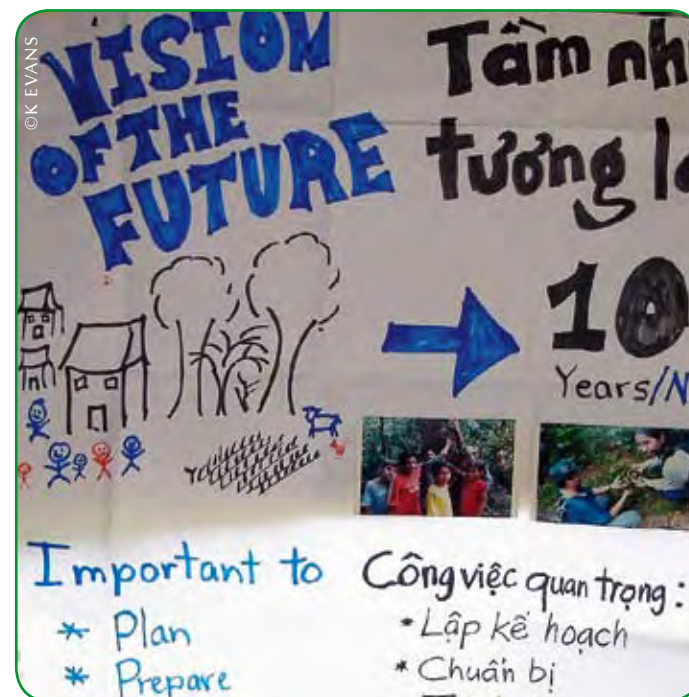 ©K EVANS
VISION
OF THE
FUTURE
Tầm nh
tương la
10
Years/N
Important to
* Plan
* Prepare
Công việc quan trọng :
* Lập kế hoạch
* Chuẩn bị